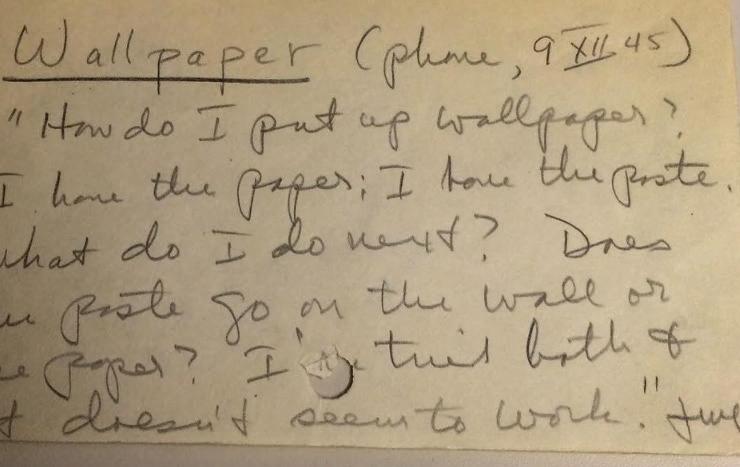 Wallpaper (phone, 9 XII 45)
"How do I put up wallpaper?
I have the paper; I have the paste.
what do I do next? Does
paste go on the wall or
paper? I've tried both &
t doesn't seem to work."